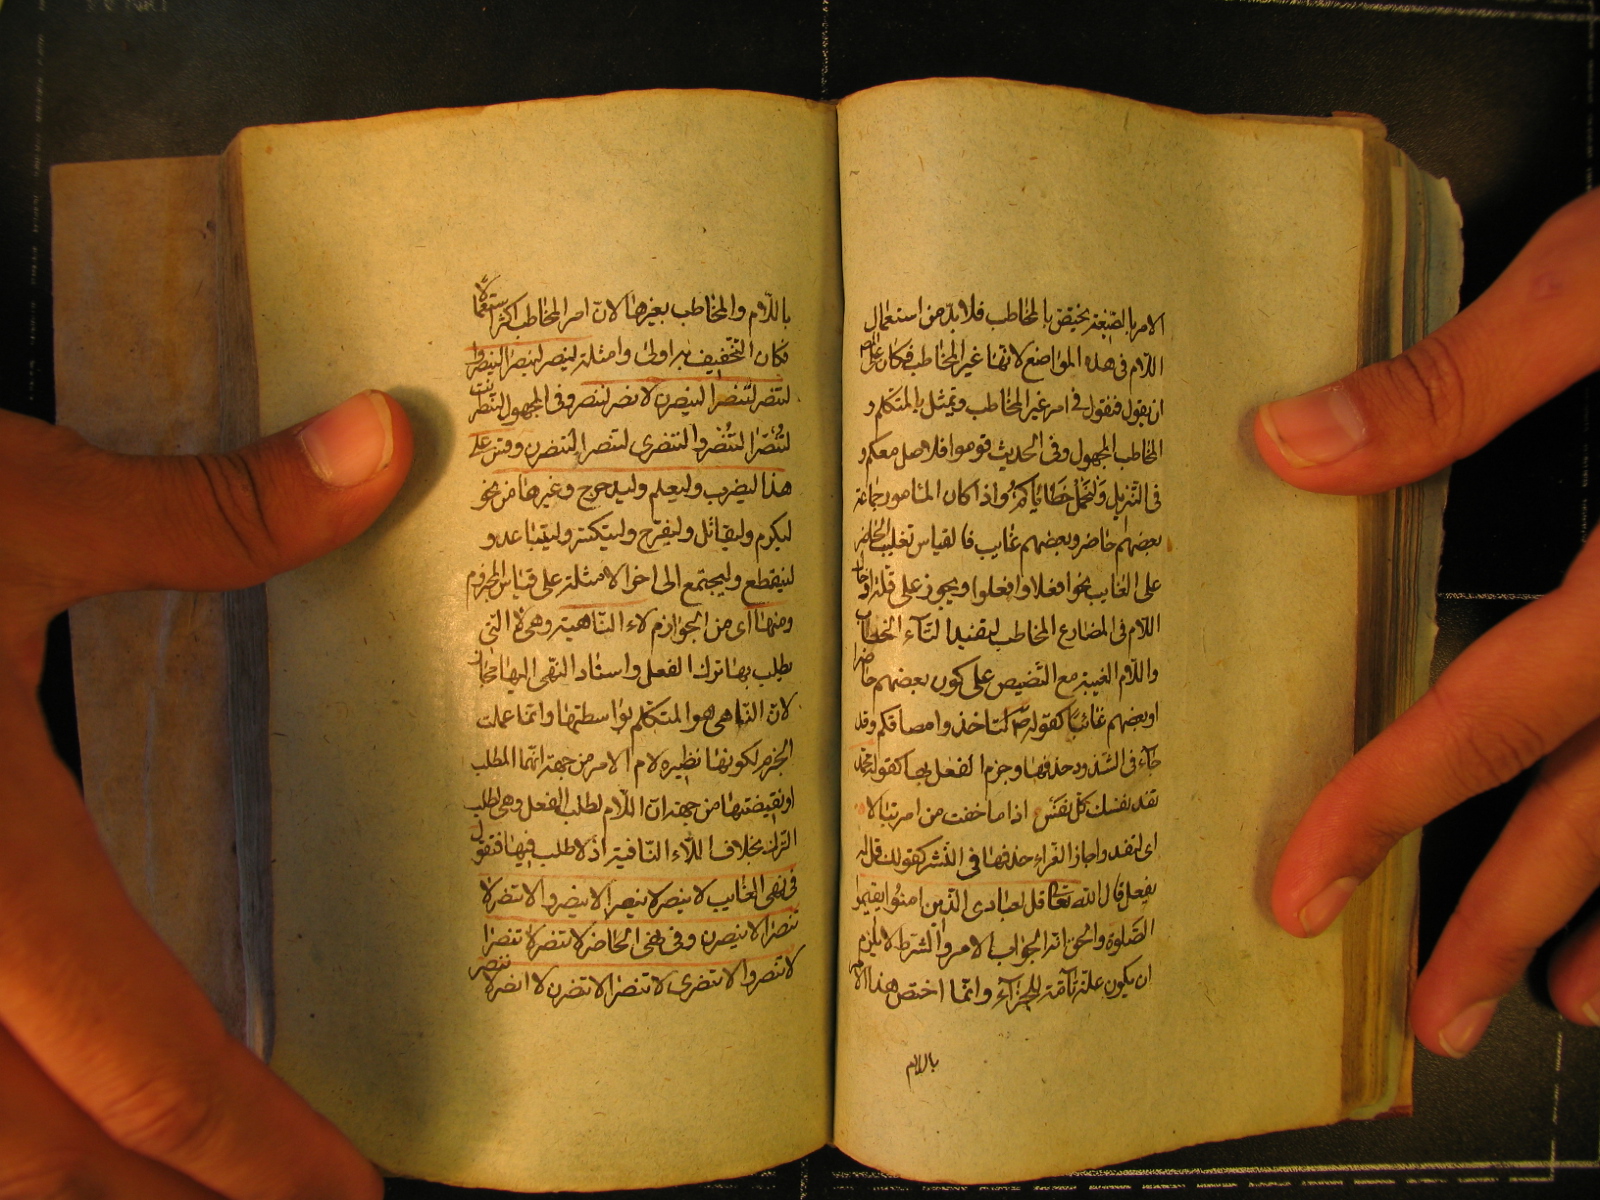 الامر بالصّيغة يختصّ بالمخاطب فلا بدّ من استعمال
اللّام فى هذه المواضع لانّها غير المخاطب فكان
ان يقول فنقول فى امر غير المخاطب ويمثل بالمتكلم و
المخاطب المجهول وفى الحديث قوموا فلاصل معكم و
فى التّنزيل ولنحمل خطاياكم واذا كان المامور جماعة
بعضهم حاضر وبعضهم غايب فالقياس تغليب الحاضر
على الغايب نحو افعلا وافعلوا ويجوز على قلّة ادخال
اللّام فى المضارع المخاطب ليفيد التّاء الخطاب
واللّام الغيبة مع التّنصيص على كون بعضهم حاضرا
او بعضهم غائبا كقوله ص لتاخذوا مصافكم وقد
جاء فى الشّذوذ حذفها وجزم الفعل بها كقوله محمد
تفد نفسك كلّ نفس اذا ما خفت من امر تبالا
اى لتفد واجاز الفراء حذفها فى النّثر كقولك قل له
يفعل قال الله تعا قل لعبادى الّذين امنوا يقيموا
الصّلوة والحق انّه الجواب الامر والشرط لا يلزم
ان يكون علّة تامّة للجزاء وانّما اختصّ هذا الامر
باللام
باللّام والمخاطب بغيرها لانّ امر المخاطب اكثر استعمالا
فكان التّخفيف به اولى وامثلته لينصر لينصرا لينصروا
لتنصر لتنصرا لينصرن لانصر لننصر وفى المجهول لتنصر
لتنصرا لتنصروا لتنصرى لتنصرا لتنصرن وقس على
هذا ليضرب وليعلم وليدحرج وغيرها من نحو
ليكرم وليقاتل وليفرّح وليتكسّر وليتباعد و
لينقطع وليجتمع الى اخر الامثلة على قياس المجزوم
ومنها اى من الجوازم لاء النّاهية وهى لا الّتى
يطلب بها ترك الفعل واسناد النّهى اليها مجاز
لانّ النّاهى هو المتكلّم بواسطتها وانّما عملت
الجزم لكونها نظيره لام الامر من جهة انّهما المطلب
او نقيضتها من جهة انّ اللّام لطلب الفعل وهى لطلب
الترك بخلاف اللّاء النّافية اذ لا طلب فيها فتقول
فى نهى الغايب لا ينصر لا ينصرا لا ينصروا لا تنصر لا
تنصرا لا ينصرن وفى نهى الحاضر لا تنصر لا تنصرا
لا تنصروا لا تنصرى لا تنصرا لا تنصرن لا انصر لا ننصر